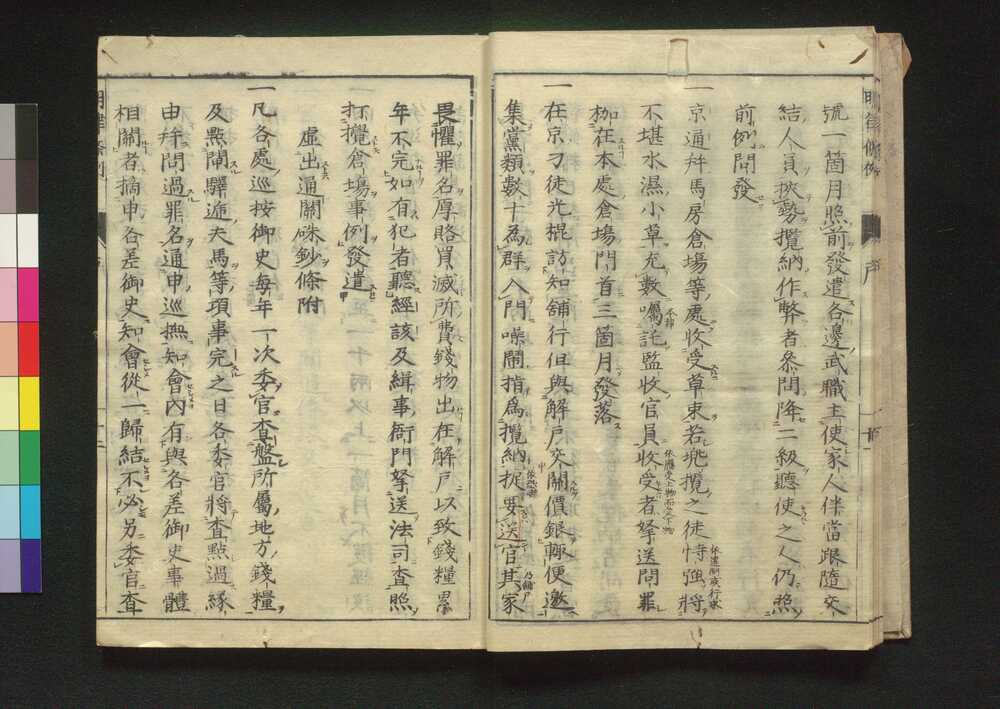 號一箇月照前發遣各邊武職主使家人伴當跟隨交
結人員挾勢攬納作弊者叅問降二級聽使之人仍照
前例問發
一京通幷馬房倉場等處收受草束若兠攬之徒恃強將
不堪水濕小草充數囑託監收官員收受者拏送問罪
枷在本處倉場門首三箇月發落
一在京刁徒光棍訪知舖行但與解戶交關價銀輒便邀
集黨類數十為群入門噪鬧指爲攬納捉要送官其家
畏懼罪名厚賂買滅所費錢物出在解戶以致錢糧累
年不完如有犯者聽經該及緝事衙門拏送法司查照
打攪倉場事例發遣
虛出通關硃鈔條附
一凡各處巡按御史每年一次委官查盤所屬地方錢糧
及點閘驛遞夫馬等項事完之日各委官將查點過緣
由幷問過罪名通申巡撫知會內有與各差御史事體
相關者摘申各差御史知會從一歸結不必另委官查
明律條例